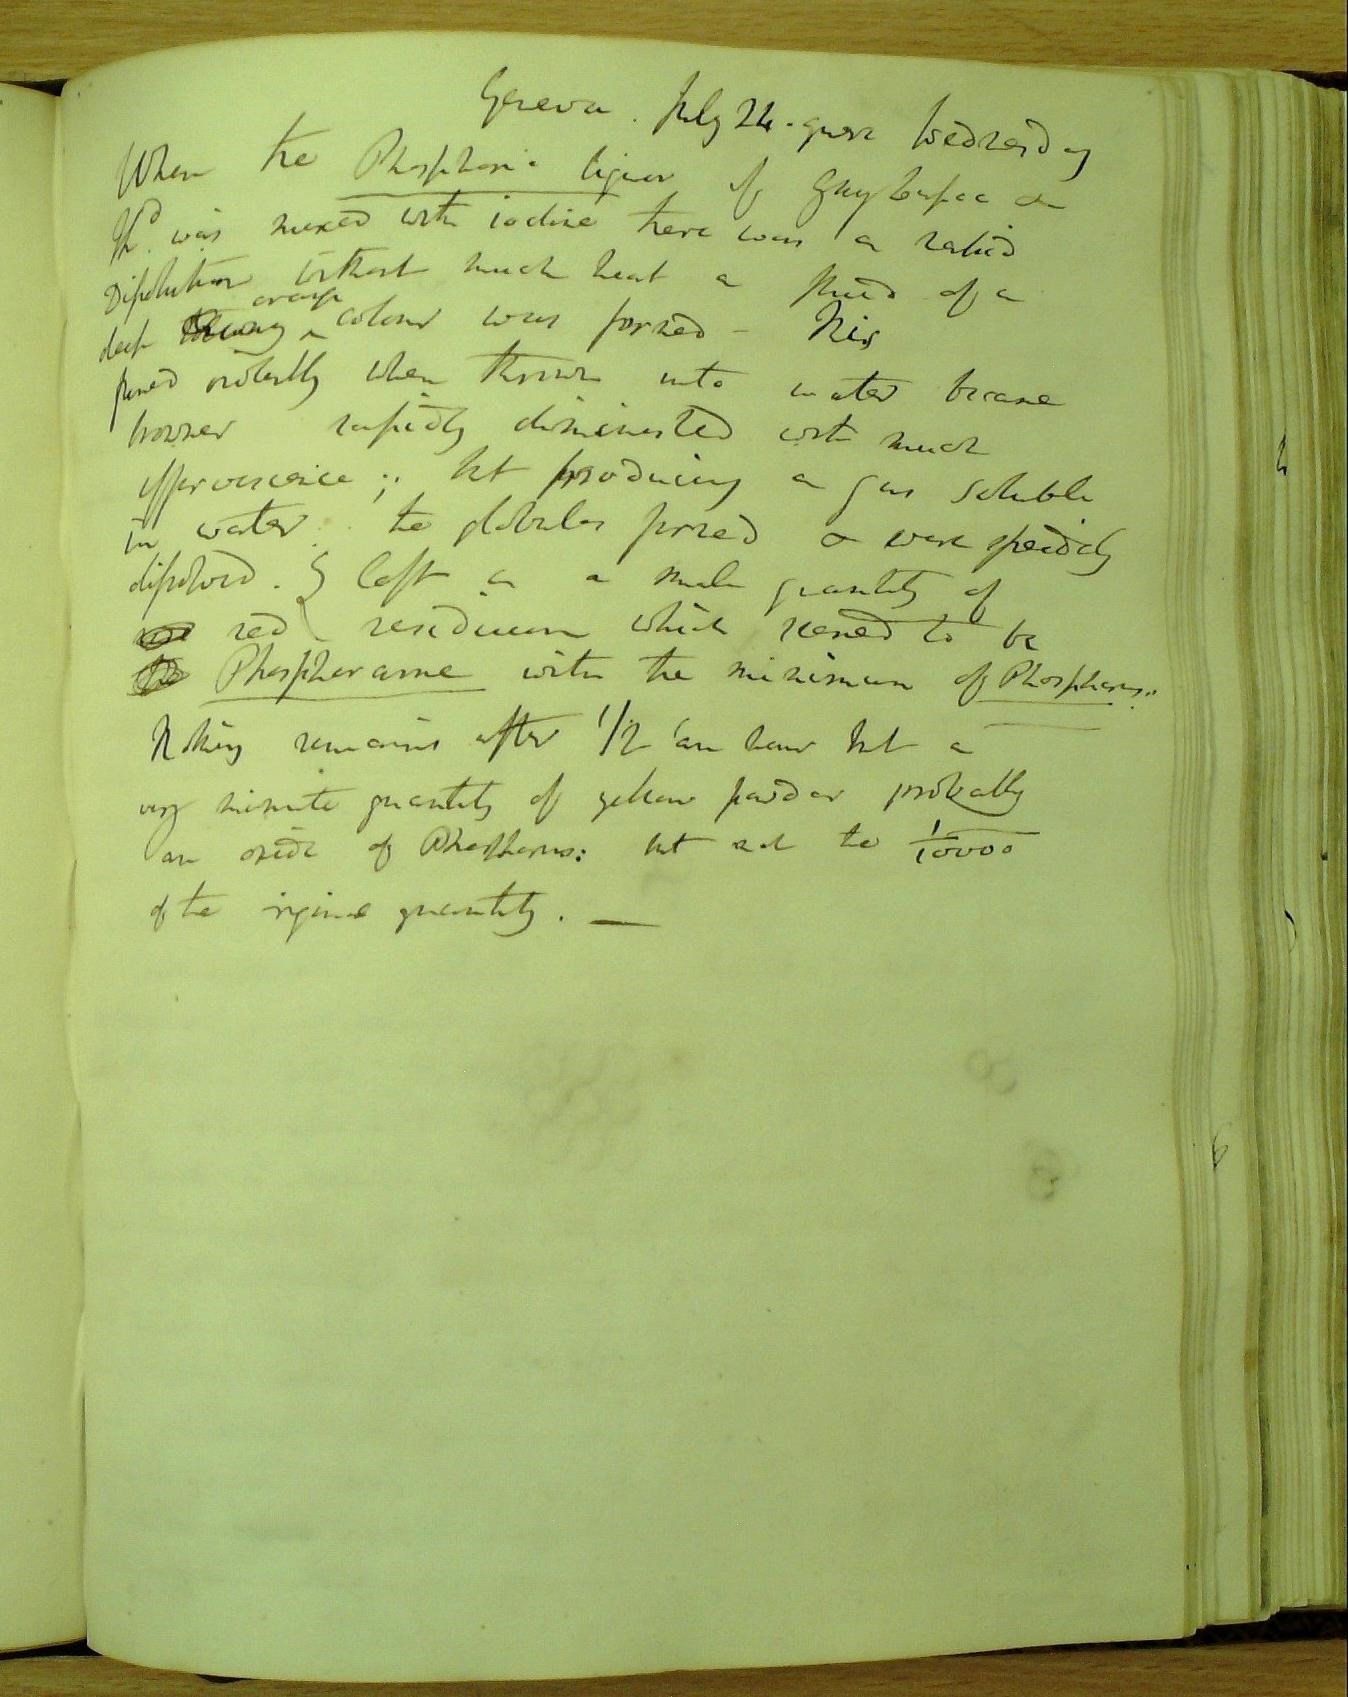 Geneva. July 24. quere Wednesday
When the Phosphoric liquor of Gay Lussac &
Thd. was mixed with iodine there was a rapid
Dissolution without much heat a fluid of a
deep orange colour was formed - This
fumed violently when thrown into water became
browner rapidly diminished with much
effervescence; but producing a gas soluble
in water. the globules formed & were speedily
dissolved. & left a small quantity of
red residuum which seemed to be
Phosphorane with the minimum of Phosphorus..
Nothing remains after 1/2 an hour but a
very minute quantity of yellow powder probably
an oxide of Phosphorus: but not to 1/10000
of the original quantity. —